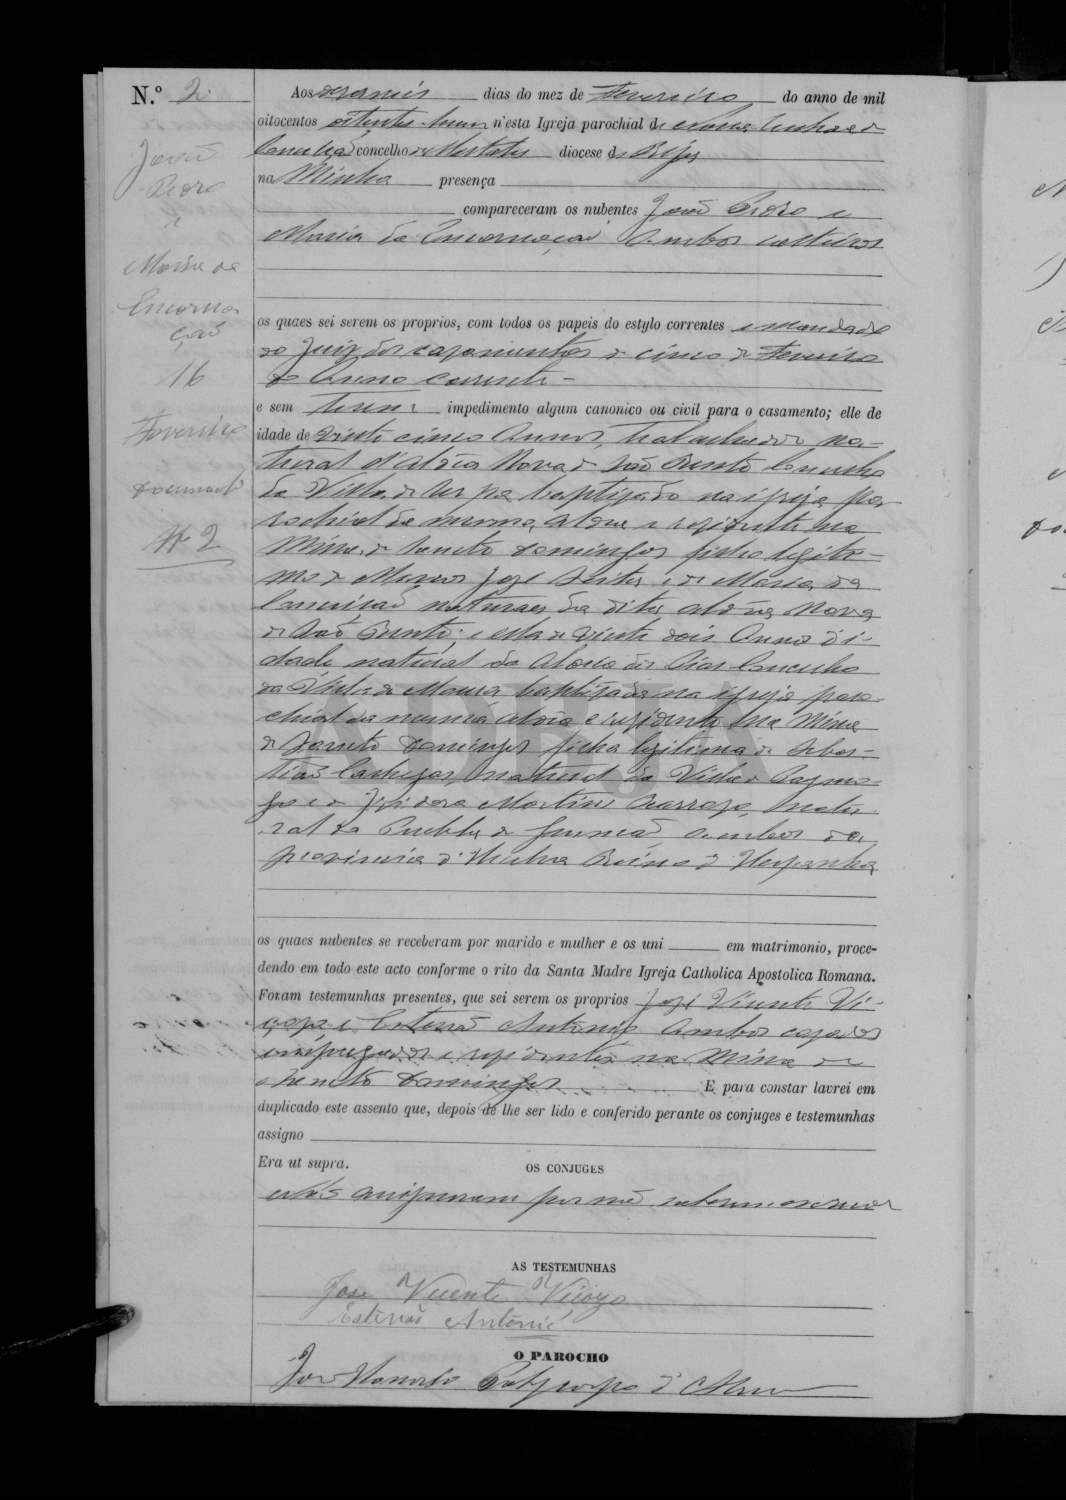 N.º 2
João
Pedro
e
Maria da
Encarna
ção
16
Fevereiro
Document
Nº 2
Aos deseseis dias do mez de Fevereiro do anno de mil
oitocentos oitenta n'esta Igreja parochial de Nossa Senhora da
Conceição concelho de Mertola diocese de Beja
na Minha presença
compareceram os nubentes João Pedro e
Maria da Encarnação Ambos solteiros
os quaes sei serem os proprios, com todos os papeis do estylo correntes e mandado
do Juiz dos casamentos de cinco de Fevereiro
do Anno corrente
e sem terem impedimento algum canonico ou civil para o casamento; elle de
idade de vinte cinco Annos, trabalhador na-
tural d'Aldêa Nova de São Bento Concelho
da Villa de Serpa baptizado na igreja pa-
rochial da mesma Aldea e residente na
Mina de Sancto Domingos filho legiti-
mo de José e de Maria da
Conceição naturaes da dita Aldêa Nova
de São Bento; e ella de vinte dois Annos di-
dade natural da Aldêa de Concelho
da Villa de Moura baptisada na igreja paro-
chial da mesma Aldêa e residente na Mina
de Sancto Domingos filha legitima de Sebas-
tião natural da Villa de Paymo-
go e de Izidora Martins natu-
ral da Puebla de Gusmão ambos da
provincia d'Huelva Reino d'Hespanha
os quaes nubentes se receberam por marido e mulher e os uni em matrimonio, proce-
dendo em todo este acto conforme o rito da Santa Madre Igreja Catholica Apostolica Romana.
Foram testemunhas presentes, que sei serem os proprios José Vicente Vi-
e Estevão Antonio Ambos casados
empregados e residentes na Mina de
Sancto Domingos E para constar lavrei em
duplicado este assento que, depois de lhe ser lido e conferido perante os conjuges e testemunhas
assigno
Era ut supra.
OS CONJUGES
não assignaram por não saberem escrever
AS TESTEMUNHAS
José Vicente
Estevão Antonio
O PAROCHO
ADBJA